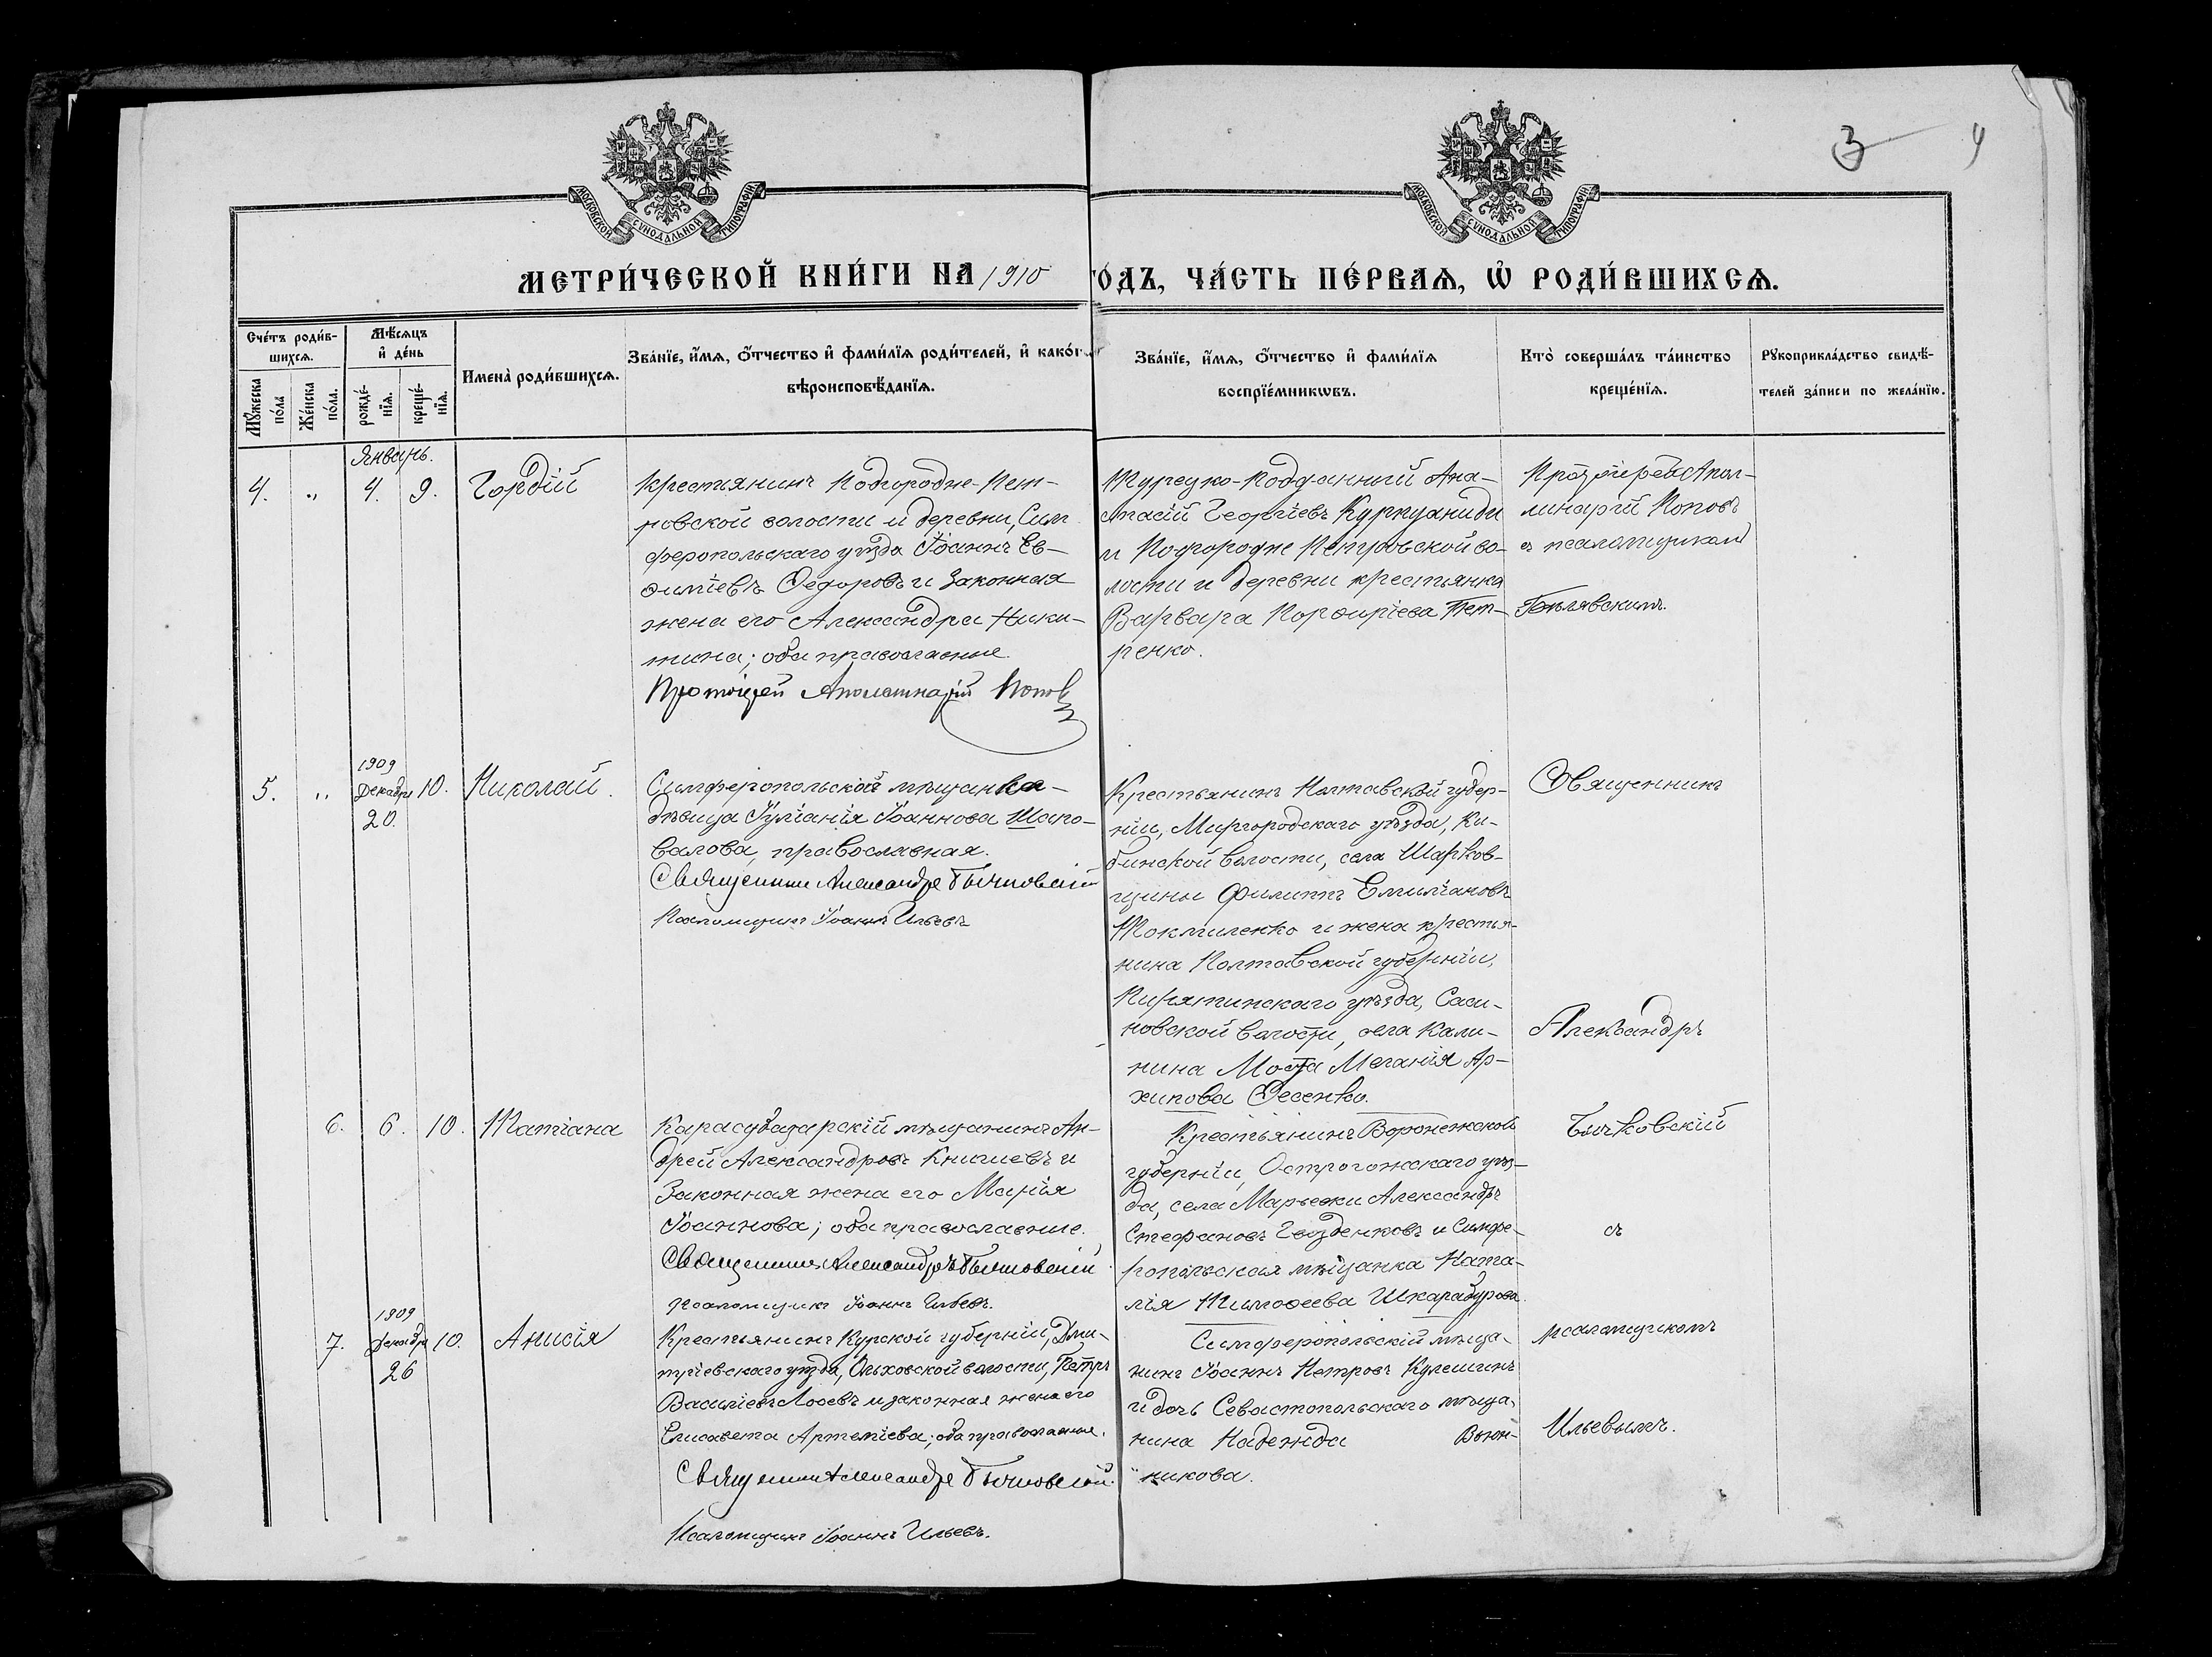 МОСКОВСКОЙ СУНОДАЛЬНОЙ ТИПОГРАФІИ
МОСКОВСКОЙ СУНОДАЛЬНОЙ ТИПОГРАФІИ
3 4
МЕТРИ́ЧЕСКОЙ КНИ́ГИ НА 1910
ГО́ДЪ, ЧА́СТЬ ПЕ́РВАѦ, Ѡ҆ РОДИ́ВШИХСѦ.
Сче́тъ роди́в-
шихсѧ.
Мꙋ́жеска по́ла
Же́нска по́ла.
Мѣ́сѧцъ
и҆ де́нь
рожде́-
нїѧ.
креще́-
нїѧ.
Имена̀ роди́вшихсѧ.
Зва́нїе, и҆́мѧ, ѻ҆́тчество и҆ фами́лїѧ роди́телей, и҆ како́гѡ
вѣроисповѣ́данїѧ.
Зва́нїе, и҆́мѧ, ѻ҆́тчество и҆ фами́лїѧ
воспрїе́мникѡвъ.
Кто̀ соверша́лъ та́инство
креще́нїѧ.
Рꙋкоприкла́дство свидѣ́-
телей за́писи по жела́нїю.
Январь.
4. „ 4. 9. Гордій
Крестьянинъ Подгородне-Пет-
ровской волости и деревни, Сим
феропольскаго уѣзда Іоаннъ Ев-
ѳиміевъ Ѳедоровъ и законная
жена его Александра Ники-
тина; оба православные.
Протоіерей Аполлинарій Попов
Турецко-подданный Ана-
стасій Георгіевъ Курпуаниди
и Подгородне Петровской во-
лости и деревни крестьянка
Варвара Порфиріева Пет-
ренко.
Протоіерей Апол-
линарій Поповъ
съ псаломщиком
Бѣлявскимъ.
5. „ 1909 Декабря 20. 10. Николай.
Симферопольской мѣщанка-
дѣвица Іуліанія Іоаннова Шапо-
валова, православная.
Священник Александръ Бычковскій
Псаломщикъ Іоаннъ Ильевъ
Крестьянинъ Полтавской губер-
ніи, Миргородскаго уѣзда, Ки-
бинской волости, села Шарков-
щины Филиппъ Емиліановъ
Токмиленко и жена крестья-
нина Полтавской губерніи,
Пирятинскаго уѣзда, Саси-
новской волости, села Кали-
нина Моста Меланія Ар-
хипова Фесенко.
Священникъ
Александръ
6. 6. 10. Татіана
Карасубазарскій мѣщанинъ Ан-
дрей Александровъ Книшевъ и
законная жена его Марія
Іоаннова; оба православные.
Священник Александръ Бычковскій
Псаломщикъ Іоаннъ Ильевъ.
Крестьянинъ Воронежской
губерніи, Острогожскаго уѣз-
да, села Марьевки Александръ
Стефановъ Гвозденковъ и Симфе-
ропольская мѣщанка Ната-
лія Тимоѳеева Шкарабурова.
Бычковскій
съ
7. 1909 Декабря 26 10. Анисія
Крестьянинъ Курской губерніи, Дми-
тріевскаго уѣзда, Ольховской волости, Петръ
Василіевъ Лосевъ и законная жена его
Елисавета Артеміева; оба православные.
Священник Александръ Бычковскій.
Псаломщикъ Іоаннъ Ильевъ.
Симферопольскій мѣща-
нинъ Іоаннъ Петровъ Кулешинъ
и дочь Севастопольскаго мѣща-
нина Надежда Вьюн-
никова.
псаломщикомъ
Ильевымъ.